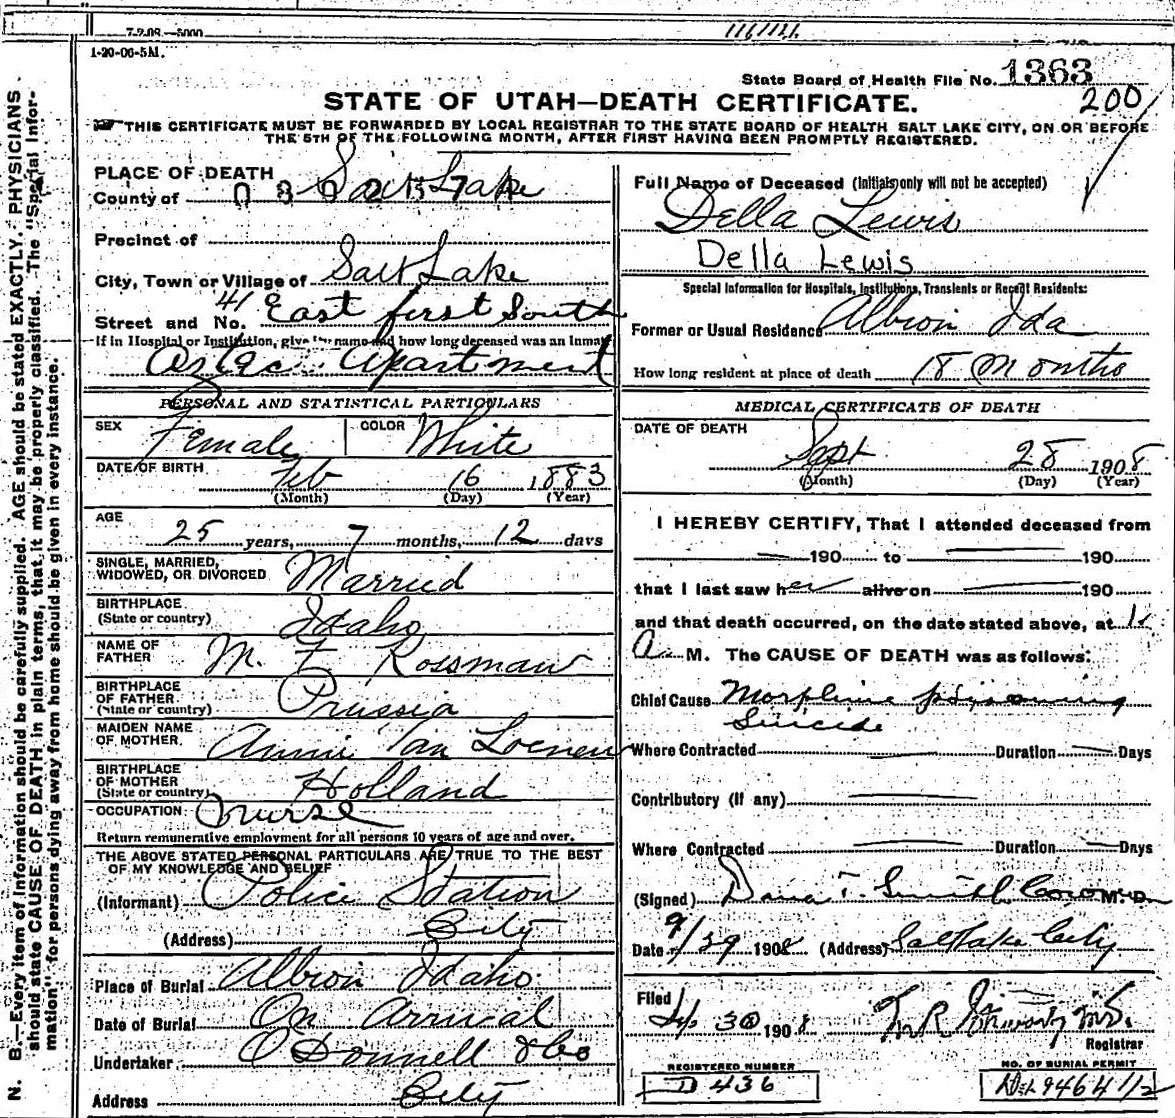 7-2-08.—5000
1-20-06-5M.
State Board of Health File No. 1363
200
STATE OF UTAH—DEATH CERTIFICATE.
THIS CERTIFICATE MUST BE FORWARDED BY LOCAL REGISTRAR TO THE STATE BOARD OF HEALTH SALT LAKE CITY, ON OR BEFORE
THE 5TH OF THE FOLLOWING MONTH, AFTER FIRST HAVING BEEN PROMPTLY REGISTERED.
N. B.—Every item of information should be carefully supplied. AGE should be stated EXACTLY. PHYSICIANS
should state CAUSE OF DEATH in plain terms, that it may be properly classified. The "Special Infor-
mation" for persons dying away from home should be given in every instance.
PLACE OF DEATH
County of Salt Lake
Precinct of
City, Town or Village of Salt Lake
Street and No. 41 East first South
If in Hospital or Institution, give its name and how long deceased was an inmate
Aztec Apartment
PERSONAL AND STATISTICAL PARTICULARS
SEX Female COLOR White
DATE OF BIRTH Feb 16 1883
(Month) (Day) (Year)
AGE
25 years, 7 months, 12 days
SINGLE, MARRIED,
WIDOWED, OR DIVORCED Married
BIRTHPLACE
(State or country) Idaho
NAME OF
FATHER M. F. Rossman
BIRTHPLACE
OF FATHER
(State or country) Prussia
MAIDEN NAME
OF MOTHER Annie Van Loenen
BIRTHPLACE
OF MOTHER
(State or country) Holland
OCCUPATION Nurse
Return remunerative employment for all persons 10 years of age and over.
THE ABOVE STATED PERSONAL PARTICULARS ARE TRUE TO THE BEST
OF MY KNOWLEDGE AND BELIEF
(Informant) Police Station
(Address) City
Place of Burial Albion Idaho
Date of Burial On Arrival
Undertaker O'Donnell & Co
Address City
Full Name of Deceased (Initials only will not be accepted)
Della Lewis
Della Lewis
Special Information for Hospitals, Institutions, Transients or Recent Residents:
Former or Usual Residence Albion Ida
How long resident at place of death 18 Months
MEDICAL CERTIFICATE OF DEATH
DATE OF DEATH
Sept 28 1908
(Month) (Day) (Year)
I HEREBY CERTIFY, That I attended deceased from
190 to 190
that I last saw her alive on 190
and that death occurred, on the date stated above, at
A M. The CAUSE OF DEATH was as follows:
Chief Cause Morphine poisoning
Suicide
Where Contracted Duration Days
Contributory (if any)
Where Contracted Duration Days
(Signed) Dana T. Smith M.D.
Date 9/29 1908 (Address) Salt Lake City
Filed 30 1908
Registrar
REGISTERED NUMBER
D 436
NO. OF BURIAL PERMIT
9464 1/2